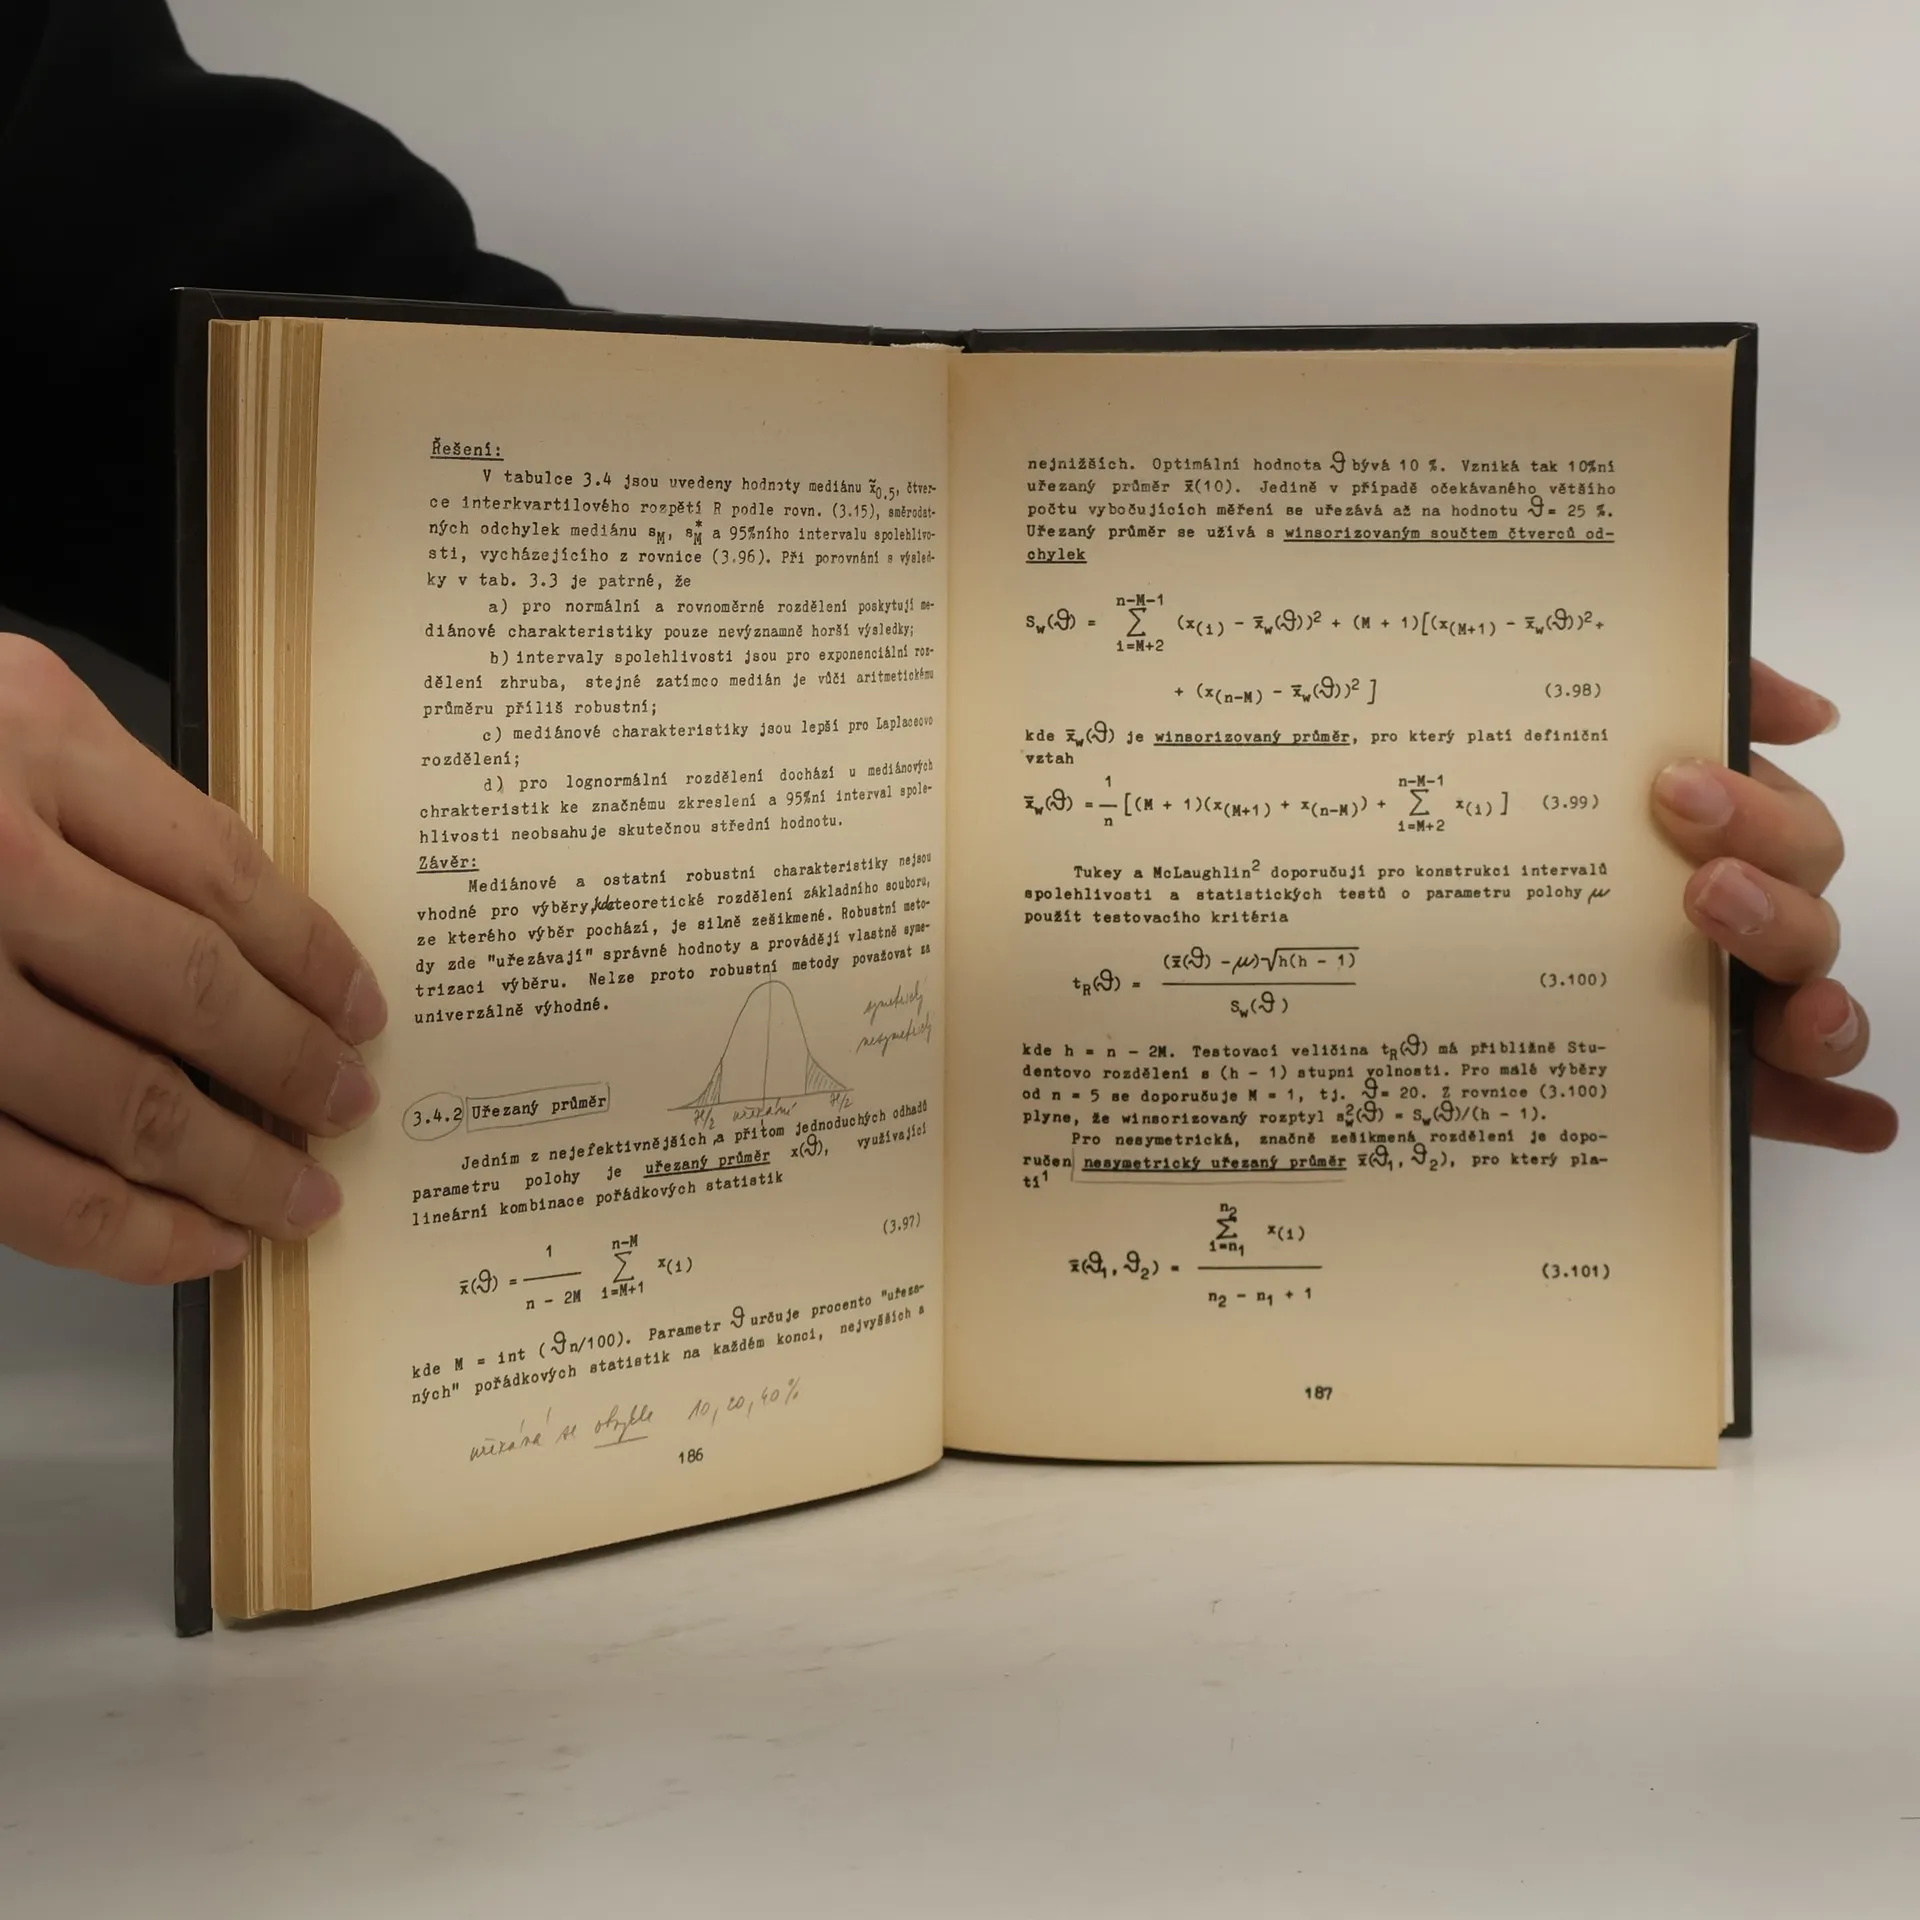 Řešení:
V tabulce 3.4 jsou uvedeny hodnoty mediánu x̃0,5, čtver-
ce interkvartilového rozpětí R podle rovn. (3.15), směrodat-
ných odchylek mediánu sM, s*M a 95%ního intervalu spolehlivo-
sti, vycházejícího z rovnice (3.96). Při porovnání s výsled-
ky v tab. 3.3 je patrné, že
a) pro normální a rovnoměrné rozdělení poskytují me-
diánové charakteristiky pouze nevýznamně horší výsledky;
b) intervaly spolehlivosti jsou pro exponenciální roz-
dělení zhruba, stejné zatímco medián je vůči aritmetickému
průměru příliš robustní;
c) mediánové charakteristiky jsou lepší pro Laplaceovo
rozdělení;
d) pro lognormální rozdělení dochází u mediánových
chrakteristik ke značnému zkreslení a 95%ní interval spole-
hlivosti neobsahuje skutečnou střední hodnotu.
Závěr:
Mediánové a ostatní robustní charakteristiky nejsou
vhodné pro výběry, kde teoretické rozdělení základního souboru,
ze kterého výběr pochází, je silně zešikmené. Robustní meto-
dy zde "uřezávají" správné hodnoty a provádějí vlastně syme-
trizaci výběru. Nelze proto robustní metody považovat za
univerzálně výhodné.
symetrický
nesymetrický
ϑ/2 uřezání ϑ/2
3.4.2 Uřezaný průměr
Jedním z nejefektivnějších a přitom jednoduchých odhadů
parametru polohy je uřezaný průměr x(ϑ), využívající
lineární kombinace pořádkových statistik
x̄(ϑ) = 1/(n - 2M) Σ_{i=M+1}^{n-M} x(i) (3.97)
kde M = int (ϑn/100). Parametr ϑ určuje procento "uřeza-
ných" pořádkových statistik na každém konci, nejvyšších a
uřezává se obvykle 10, 20, 40 %
186
nejnižších. Optimální hodnota ϑ bývá 10 %. Vzniká tak 10%ní
uřezaný průměr x̄(10). Jedině v případě očekávaného většího
počtu vybočujících měření se uřezává až na hodnotu ϑ = 25 %.
Uřezaný průměr se užívá s winsorizovaným součtem čtverců od-
chylek
Sw(ϑ) = Σ_{i=M+2}^{n-M-1} (x(i) - x̄w(ϑ))² + (M + 1)[(x(M+1) - x̄w(ϑ))² +
+ (x(n-M) - x̄w(ϑ))² ] (3.98)
kde x̄w(ϑ) je winsorizovaný průměr, pro který platí definiční
vztah
x̄w(ϑ) = 1/n [(M + 1)(x(M+1) + x(n-M)) + Σ_{i=M+2}^{n-M-1} x(i) ] (3.99)
Tukey a McLaughlin² doporučují pro konstrukci intervalů
spolehlivosti a statistických testů o parametru polohy μ
použít testovacího kritéria
tR(ϑ) = (x̄(ϑ) - μ)√h(h - 1) / Sw(ϑ) (3.100)
kde h = n - 2M. Testovací veličina tR(ϑ) má přibližně Stu-
dentovo rozdělení s (h - 1) stupni volnosti. Pro malé výběry
od n = 5 se doporučuje M = 1, tj. ϑ = 20. Z rovnice (3.100)
plyne, že winsorizovaný rozptyl s²w(ϑ) = Sw(ϑ)/(h - 1).
Pro nesymetrická, značně zešikmená rozdělení je dopo-
ručen nesymetrický uřezaný průměr x̄(ϑ1, ϑ2), pro který pla-
tí¹
x̄(ϑ1, ϑ2) = Σ_{i=n1}^{n2} x(i) / (n2 - n1 + 1) (3.101)
187